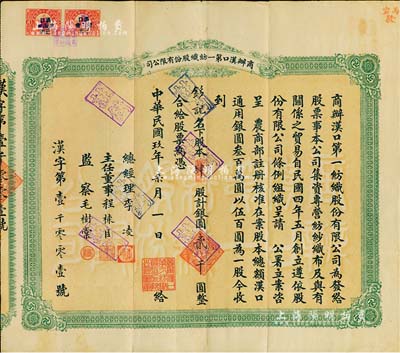 商辦漢口第一紡織股份有限公司
商辦漢口第一紡織股份有限公司為發給
股票事本公司集資專營紡紗織布及與有
關係之貿易自民國四年五月創立遵依股
份有限公司條例組織呈請 公署立案咨
呈 農商部註冊核准在案股本總額漢口
通用銀圓叁百萬圓以伍百圓為一股今收
到
股計銀圓貳千圓整
合給股票為憑
中華民國玖年柒月一日 給
總經理李凌
主任董事程棟臣
監察毛樹棠
漢字第壹千零零壹號
漢字第壹千零零壹號